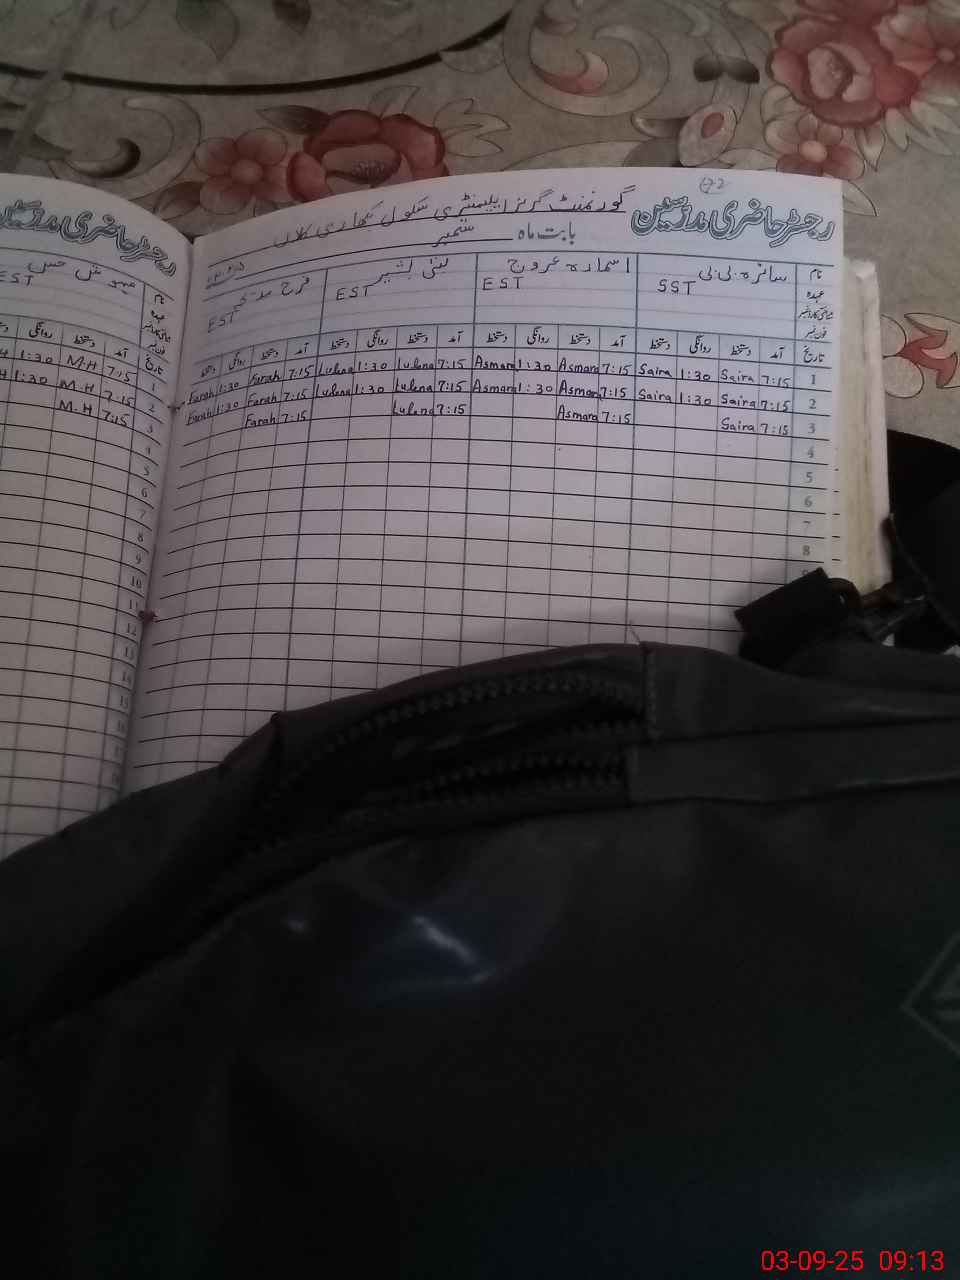 رجسٹر حاضری مدرسین
گورنمنٹ گرلز ایلیمنٹری سکول بکھاری کلاں
بابت ماہ ستمبر
رجسٹر حاضری مدرسین
نام سائرہ بی بی اسمارہ عروج لبنیٰ بشیر فرح
عہدہ SST EST EST EST
فون نمبر
تاریخ آمد دستخط روانگی دستخط آمد دستخط روانگی دستخط آمد دستخط روانگی دستخط آمد دستخط روانگی دستخط
1 7:15 Saira 1:30 Saira 7:15 Asmara 1:30 Asmara 7:15 Lubna 1:30 Lubna 7:15 Farah 1:30 Farah
2 7:15 Saira 1:30 Saira 7:15 Asmara 1:30 Asmara 7:15 Lubna 1:30 Lubna 7:15 Farah 1:30 Farah
3 7:15 Saira 7:15 Asmara 7:15 Lubna 7:15 Farah
4
5
6
7
8
نام
عہدہ EST
فون نمبر
تاریخ آمد دستخط روانگی
1 7:15 M.H 1:30
2 7:15 M.H 1:30
3 7:15 M.H
4
5
6
7
8
9
10
11
12
13
14
15
16
17
18
03-09-25 09:13